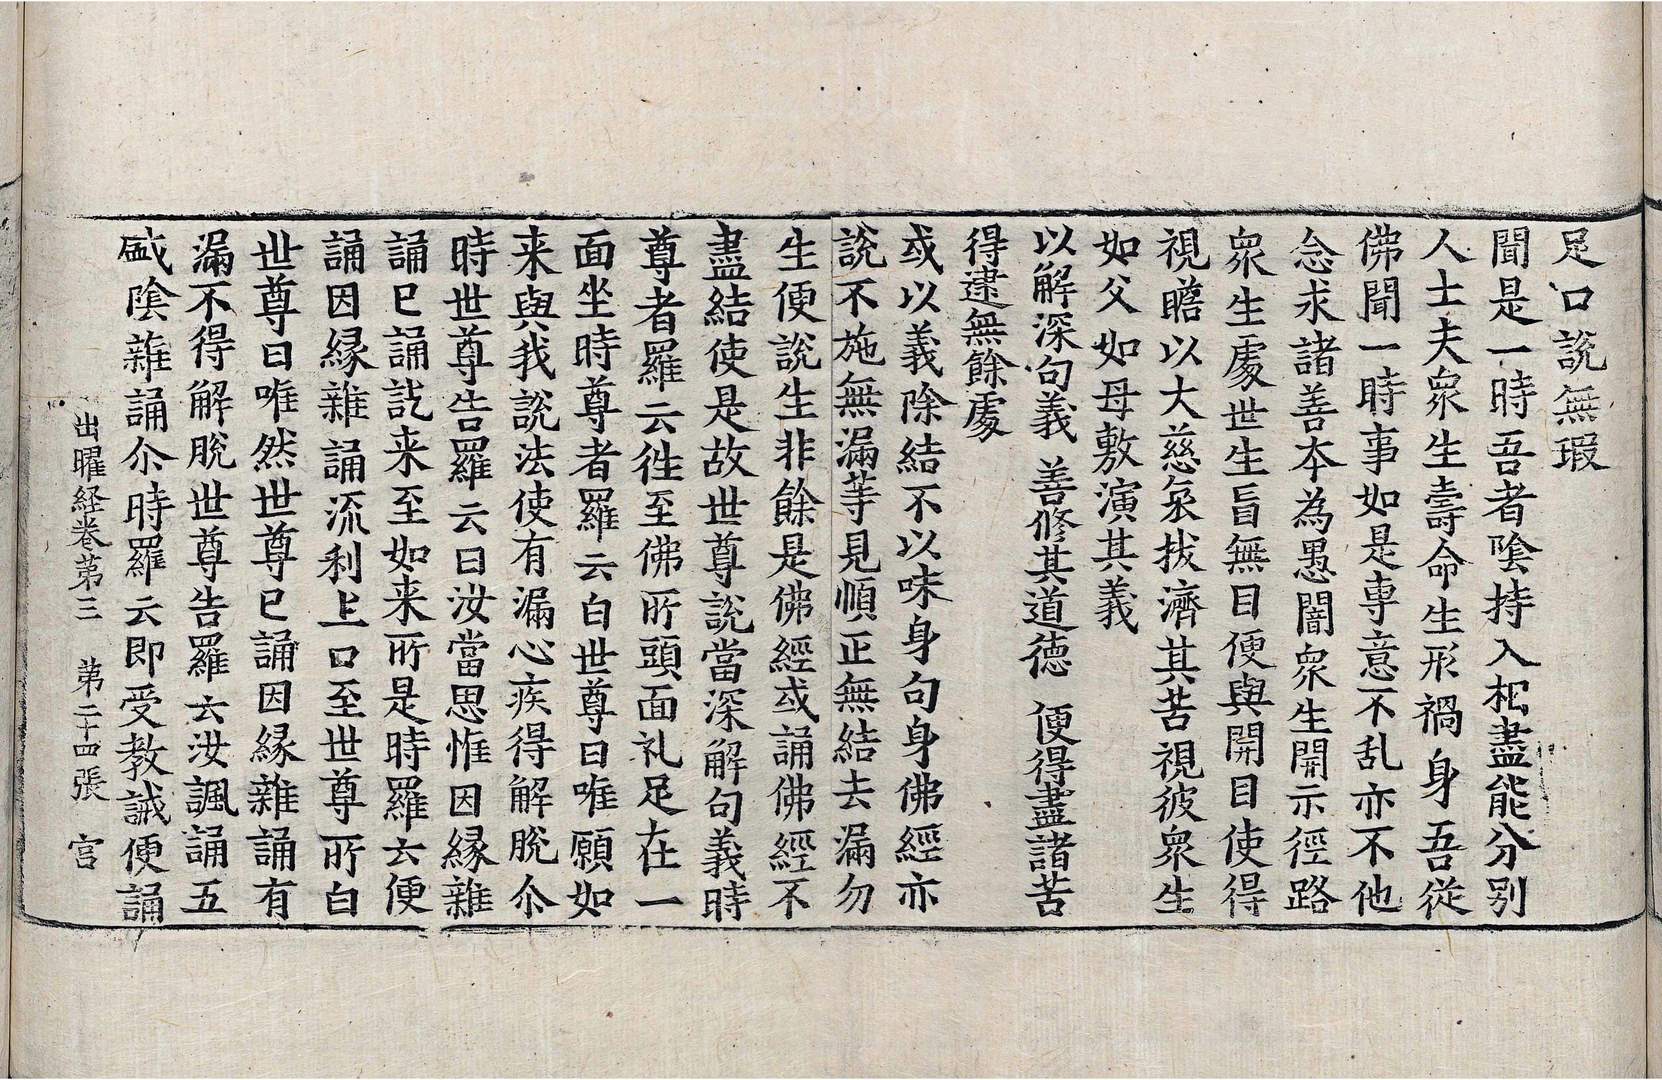 足口說無瑕
聞是一時吾者陰持入相盡能分別
人士夫眾生壽命生形禍身吾從
佛聞一時事如是専意不乱亦不他
念求諸善本為愚闇眾生開示徑路
眾生處世生盲無目便與開目使得
視瞻以大慈哀拔濟其苦視彼眾生
如父如母敷演其義
以解深句義 善修其道徳 便得盡諸苦
得逮無餘處
或以義除結不以味身句身佛經亦
說不施無漏等見順正無結去漏勿
生便說生非餘是佛經或誦佛經不
盡結使是故世尊說當深解句義時
尊者羅云徃至佛所頭面礼足在一
面坐時尊者羅云白世尊曰唯願如
来與我說法使有漏心疾得解脫尒
時世尊告羅云曰汝當思惟因縁雜
誦已誦訖来至如来所是時羅云便
誦因縁雜誦流利上口至世尊所白
世尊曰唯然世尊已誦因縁雜誦有
漏不得解脫世尊告羅云汝諷誦五
盛陰雜誦尒時羅云即受教誡便誦
出曜経卷第三 第二十四張 宮